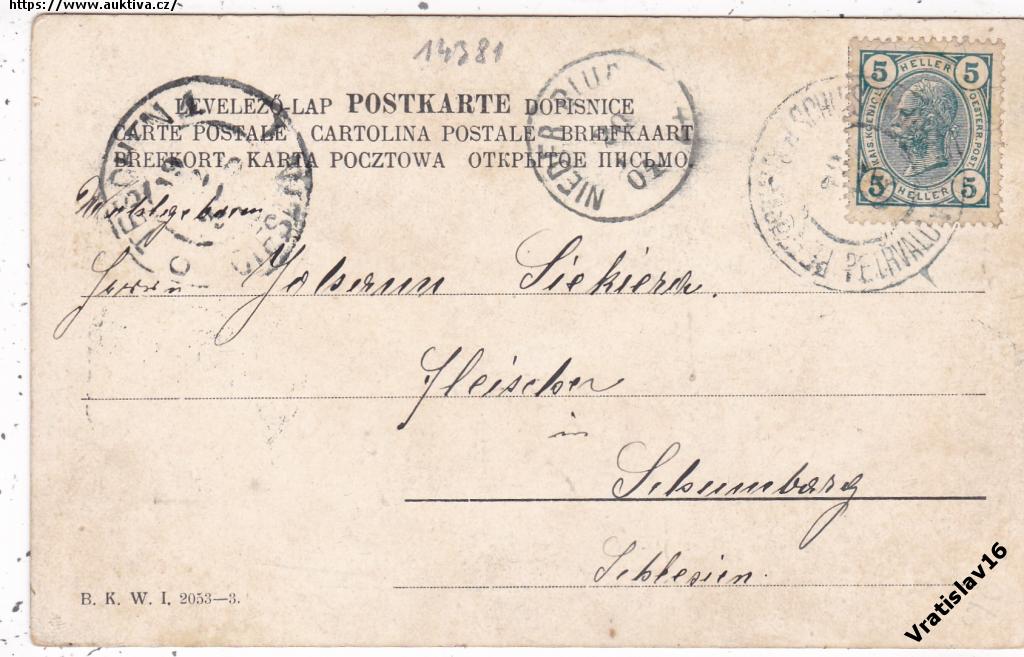 https://www.auktiva.cz/
14381
LEVELEZŐ-LAP POSTKARTE DOPISNICE
CARTE POSTALE CARTOLINA POSTALE BRIEFKAART
BREFKORT. KARTA POCZTOWA ОТКРЫТОЕ ПИСЬМО.
NIEDER
5 HELLER 5
KAIS. KOENIGL. OESTERR. POST.
5 HELLER 5
PETRVALD
Wohlgeboren
Herrn Johann Siekiera.
Fleischer
in
Schumbarg
Schlesien.
B. K. W. I. 2053—3.
Vratislav16